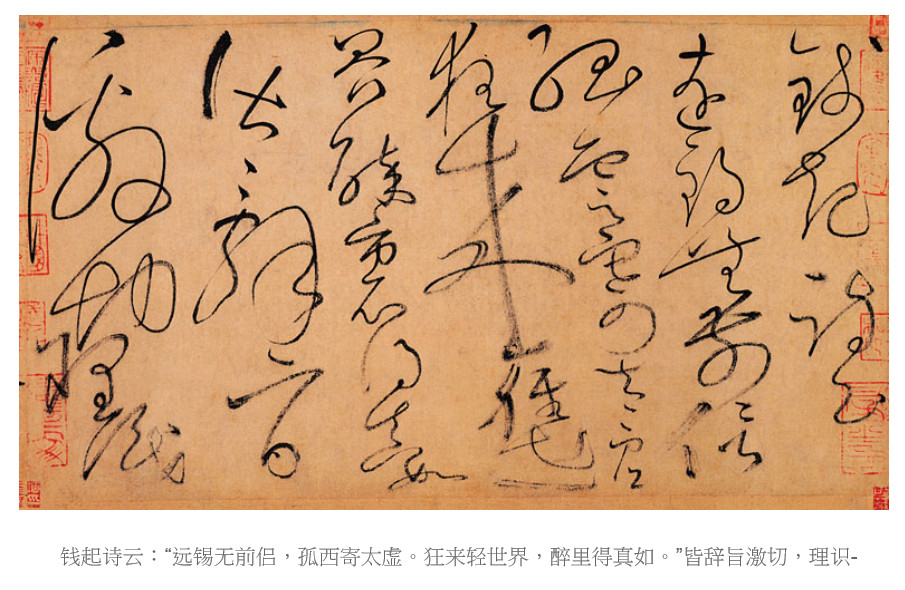 錢起詩云
遠錫無前侶
孤雲寄太虛
狂來輕世
界醉裏得真如
皆辭旨
激切理識
钱起诗云：“远锡无前侣，孤西寄太虚。狂来轻世界，醉里得真如。”皆辞旨激切，理识-